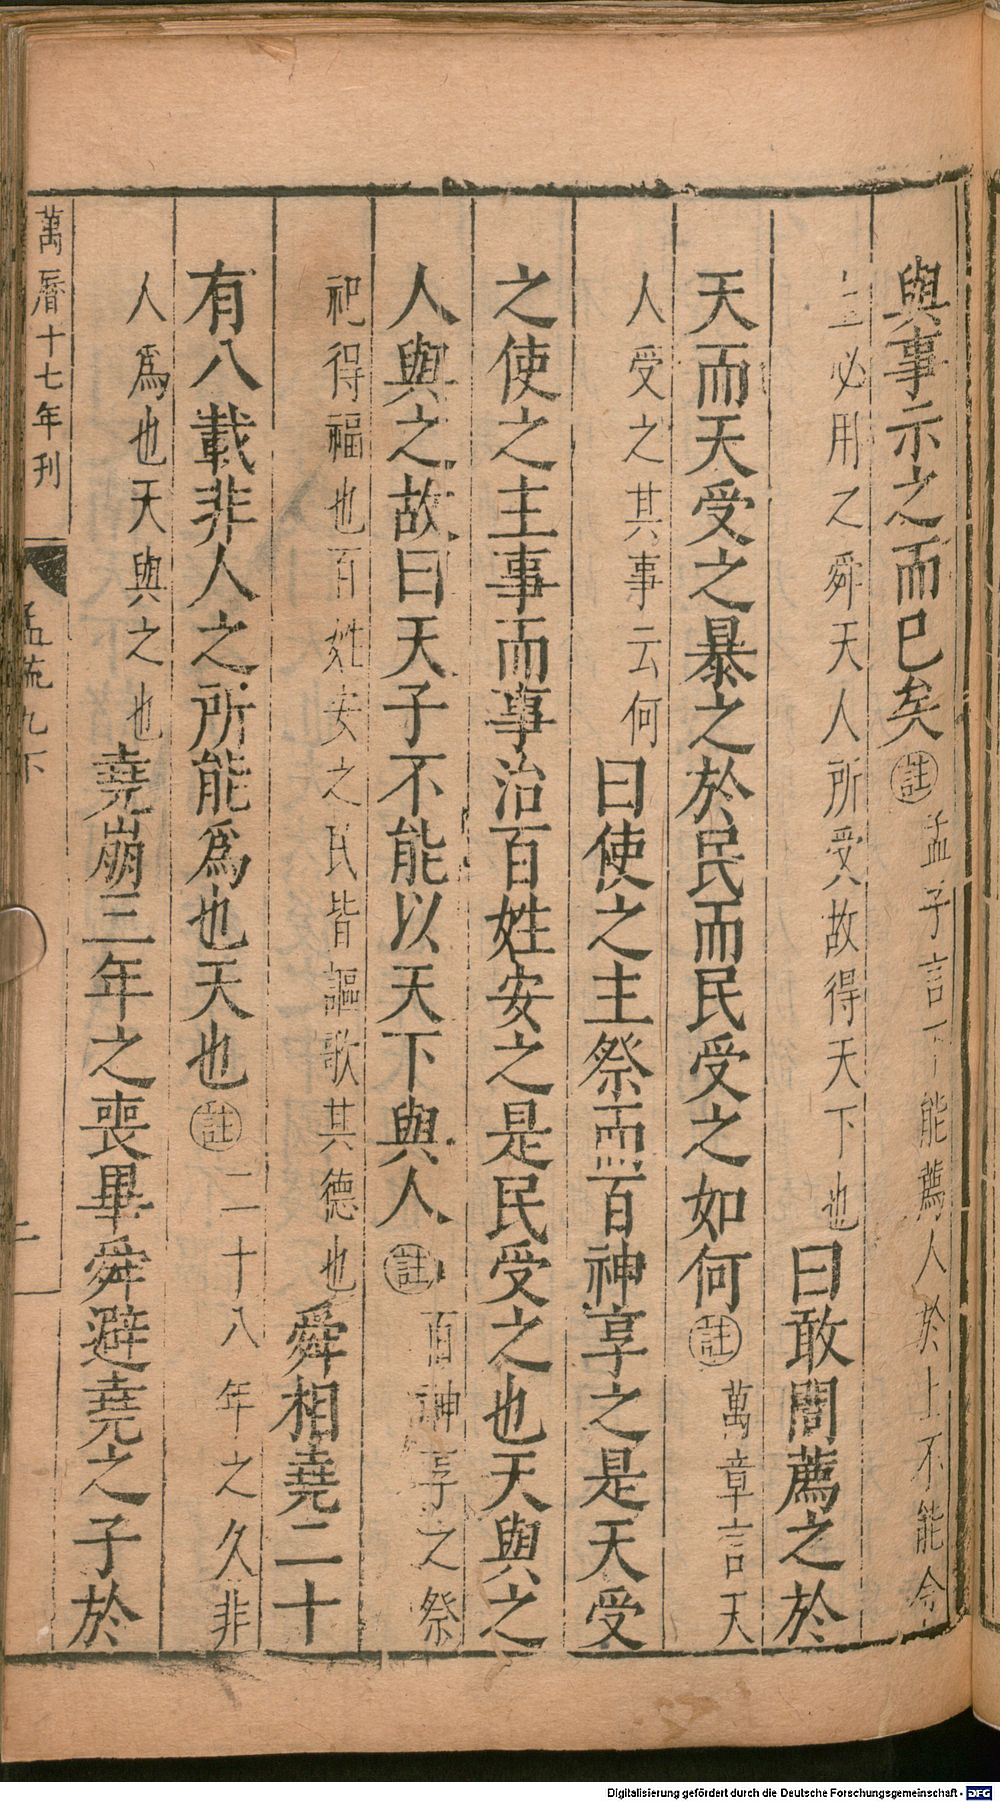 與事示之而已矣註孟子言下能薦人於上不能令
上必用之舜天人所受故得天下也曰敢問薦之於
天而天受之暴之於民而民受之如何註萬章言天
人受之其事云何曰使之主祭而百神享之是天受
之使之主事而事治百姓安之是民受之也天與之
人與之故曰天子不能以天下與人註百神享之祭
祀得福也百姓安之民皆謳歌其德也舜相堯二十
有八載非人之所能爲也天也註二十八年之久非
人爲也天與之也堯崩三年之喪畢舜避堯之子於
萬曆十七年刊
孟疏九下
Digitalisierung gefördert durch die Deutsche Forschungsgemeinschaft - DFG